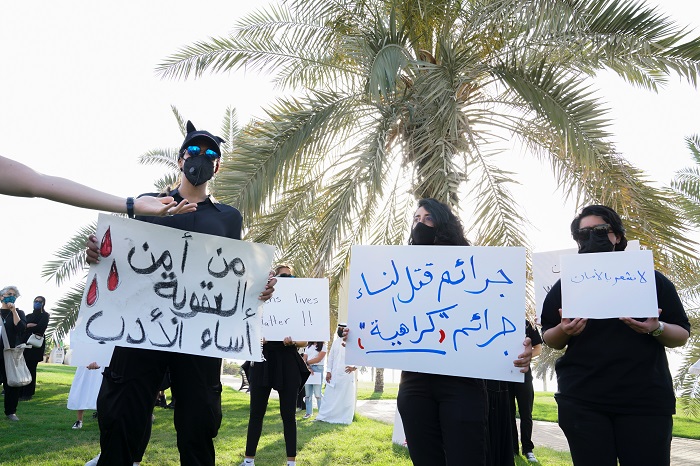 من أمن
العقوبة
أساء الأدب
lives
matter !!
جرائم قتل النساء
جرائم "كراهية"
لا نشعر بالأمان